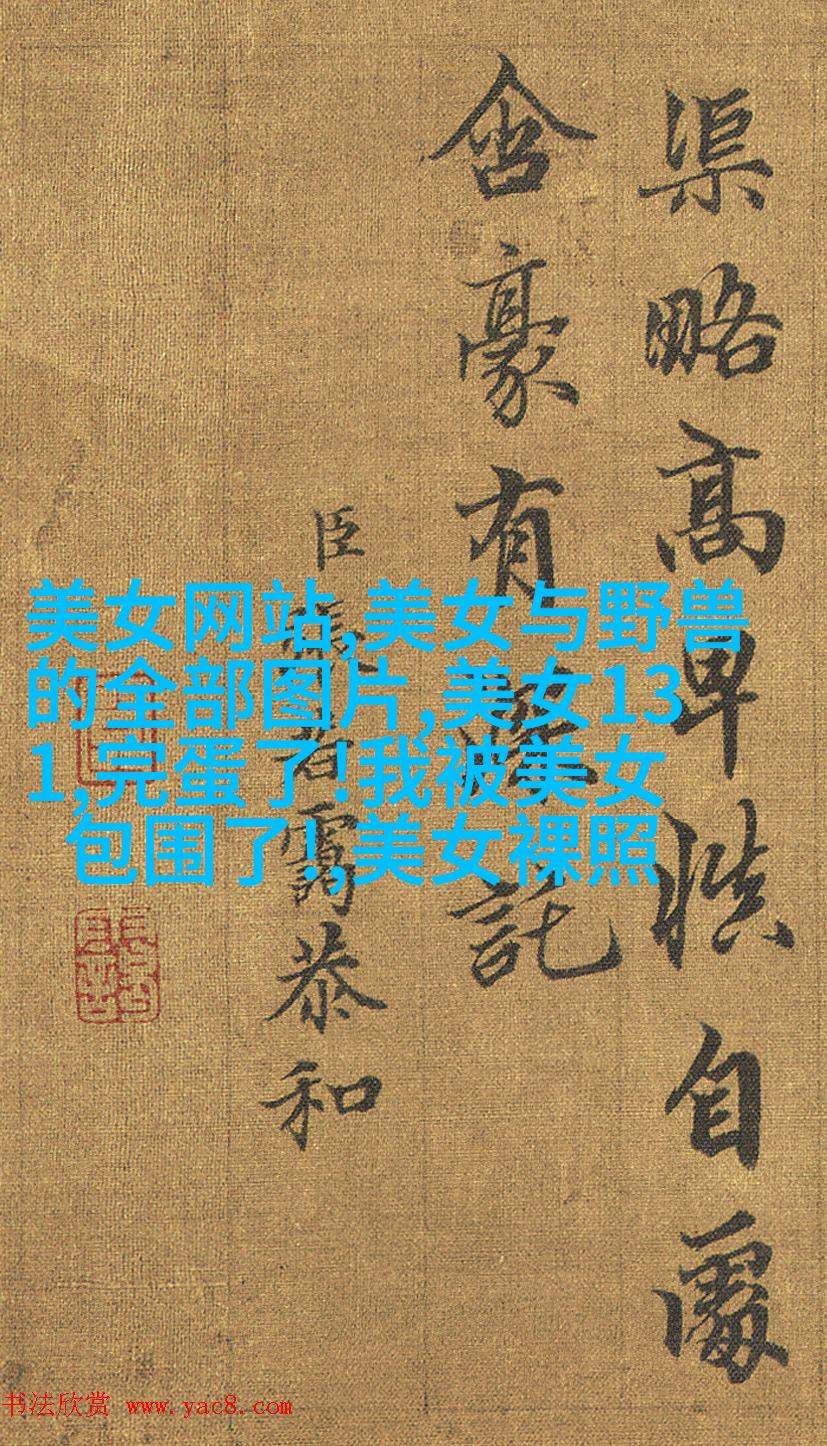 渠略高卑慎自處
含豪有 託
臣張若靄恭和
美女网站,美女与野兽
的全部图片,美女13
1,完蛋了!我被美女
包围了!,美女裸照
书法欣赏 www.yac8.com